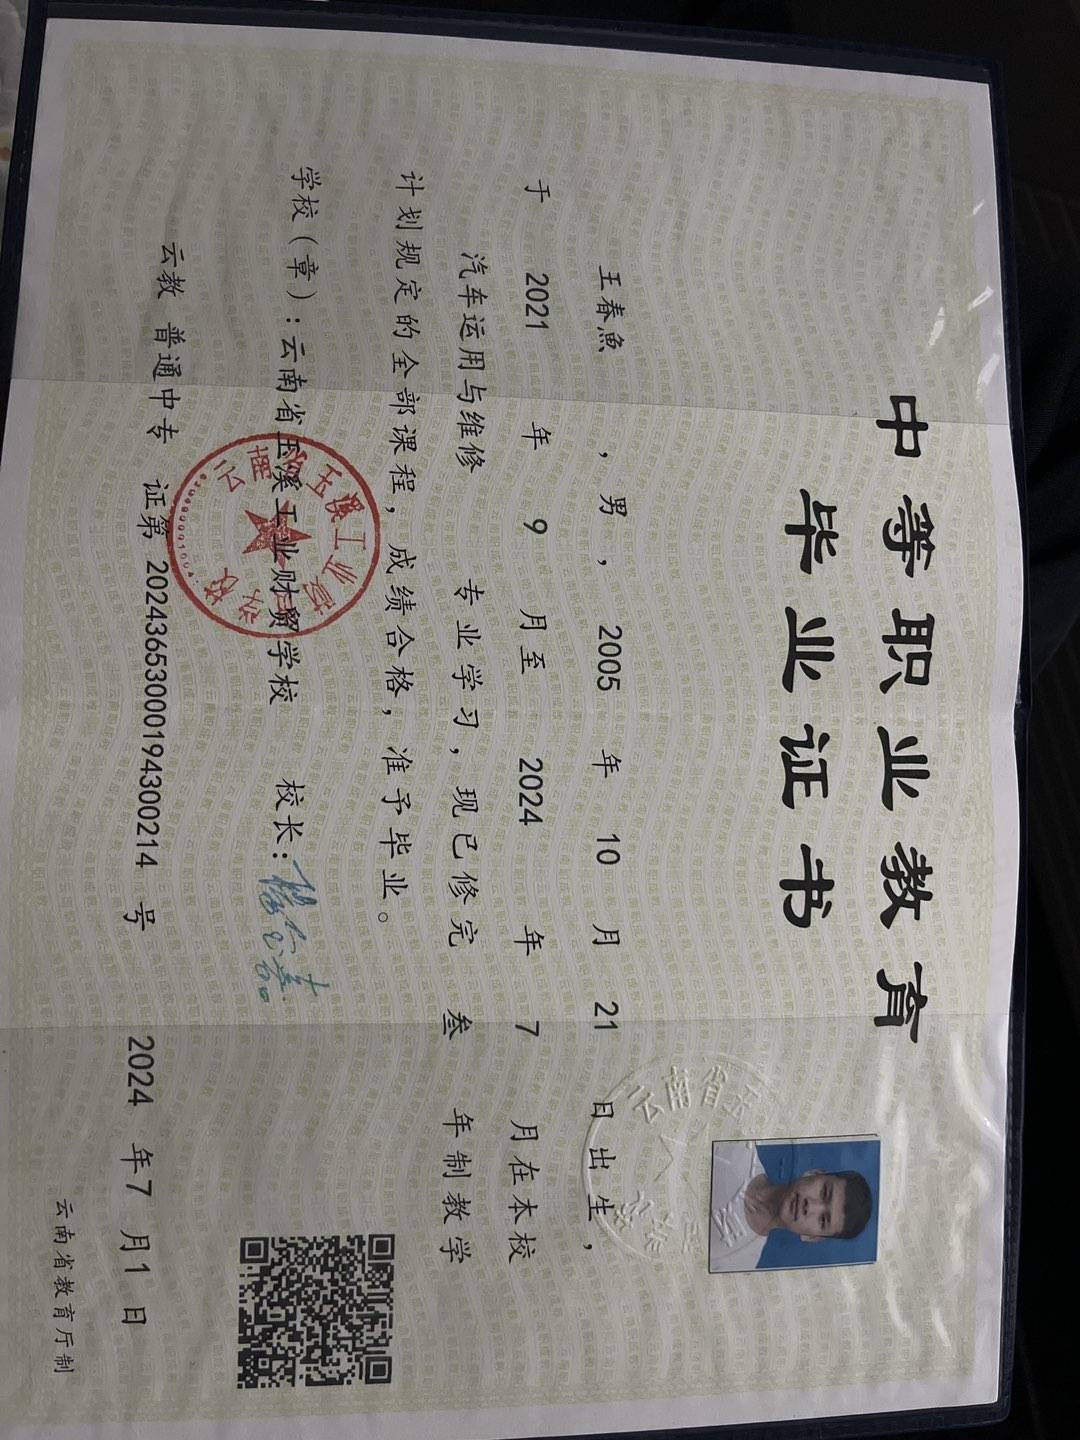 中等职业教育
毕业证书
王春魚 ，男，2005 年 10 月 21 日出生，
于 2021 年 9 月至 2024 年 7 月在本校
汽车运用与维修 专业学习，现已修完 叁 年制教学
计划规定的全部课程，成绩合格，准予毕业。
学校（章）：云南省玉溪工业财贸学校 校长：
云教 普通中专 证第 2024365300019430​0214 号 2024 年 7 月 1 日
云南省教育厅制